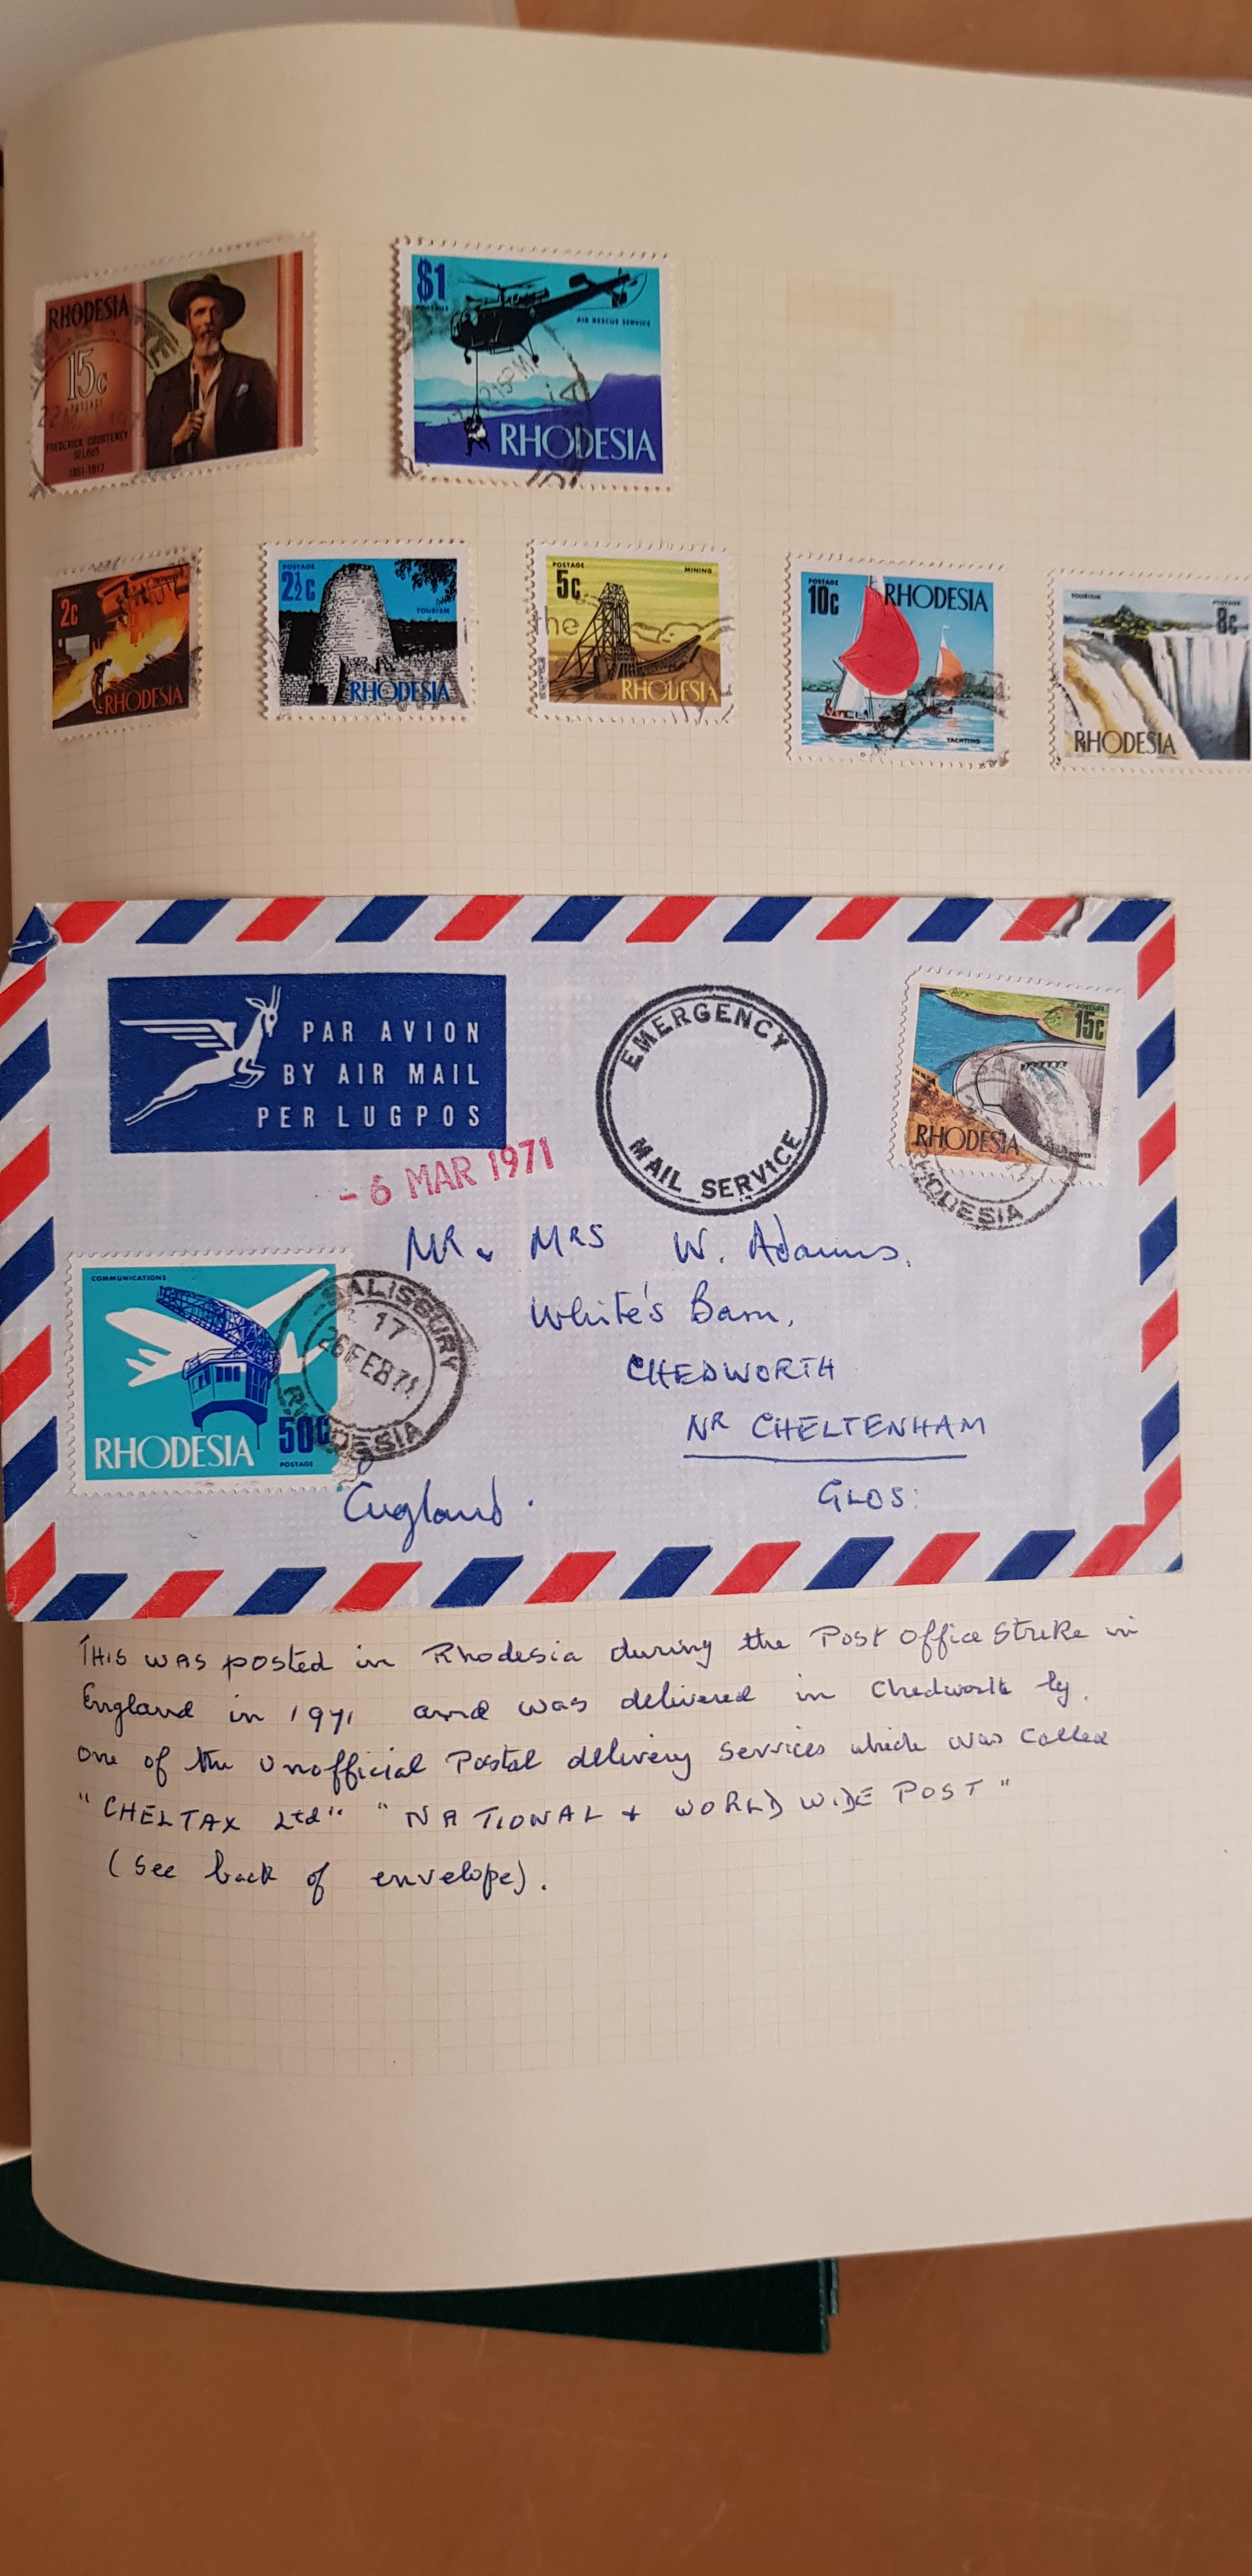 RHODESIA
15c
POSTAGE
FREDERICK COURTENEY
SELOUS
1851-1917
$1
POSTAGE
AIR RESCUE SERVICE
RHODESIA
POSTAGE
2c
RHODESIA
POSTAGE
2½c
TOURISM
RHODESIA
POSTAGE
5c
MINING
RHODESIA
POSTAGE
10c
RHODESIA
YACHTING
TOURISM
POSTAGE
8c
RHODESIA
PAR AVION
BY AIR MAIL
PER LUGPOS
EMERGENCY
MAIL SERVICE
POSTAGE
15c
RHODESIA
POWER
RHODESIA
- 6 MAR 1971
MR & MRS W. Adams,
White's Barn,
CHEDWORTH
NR CHELTENHAM
GLOS:
England.
COMMUNICATIONS
RHODESIA
50c
POSTAGE
SALISBURY
17
26 FEB 71
RHODESIA
THIS WAS posted in Rhodesia during the Post Office Strike in
England in 1971 and was delivered in Chedworth by
one of the Unofficial Postal delivery Services which was called
"CHELTAX Ltd" "NATIONAL + WORLD WIDE POST"
(See back of envelope).